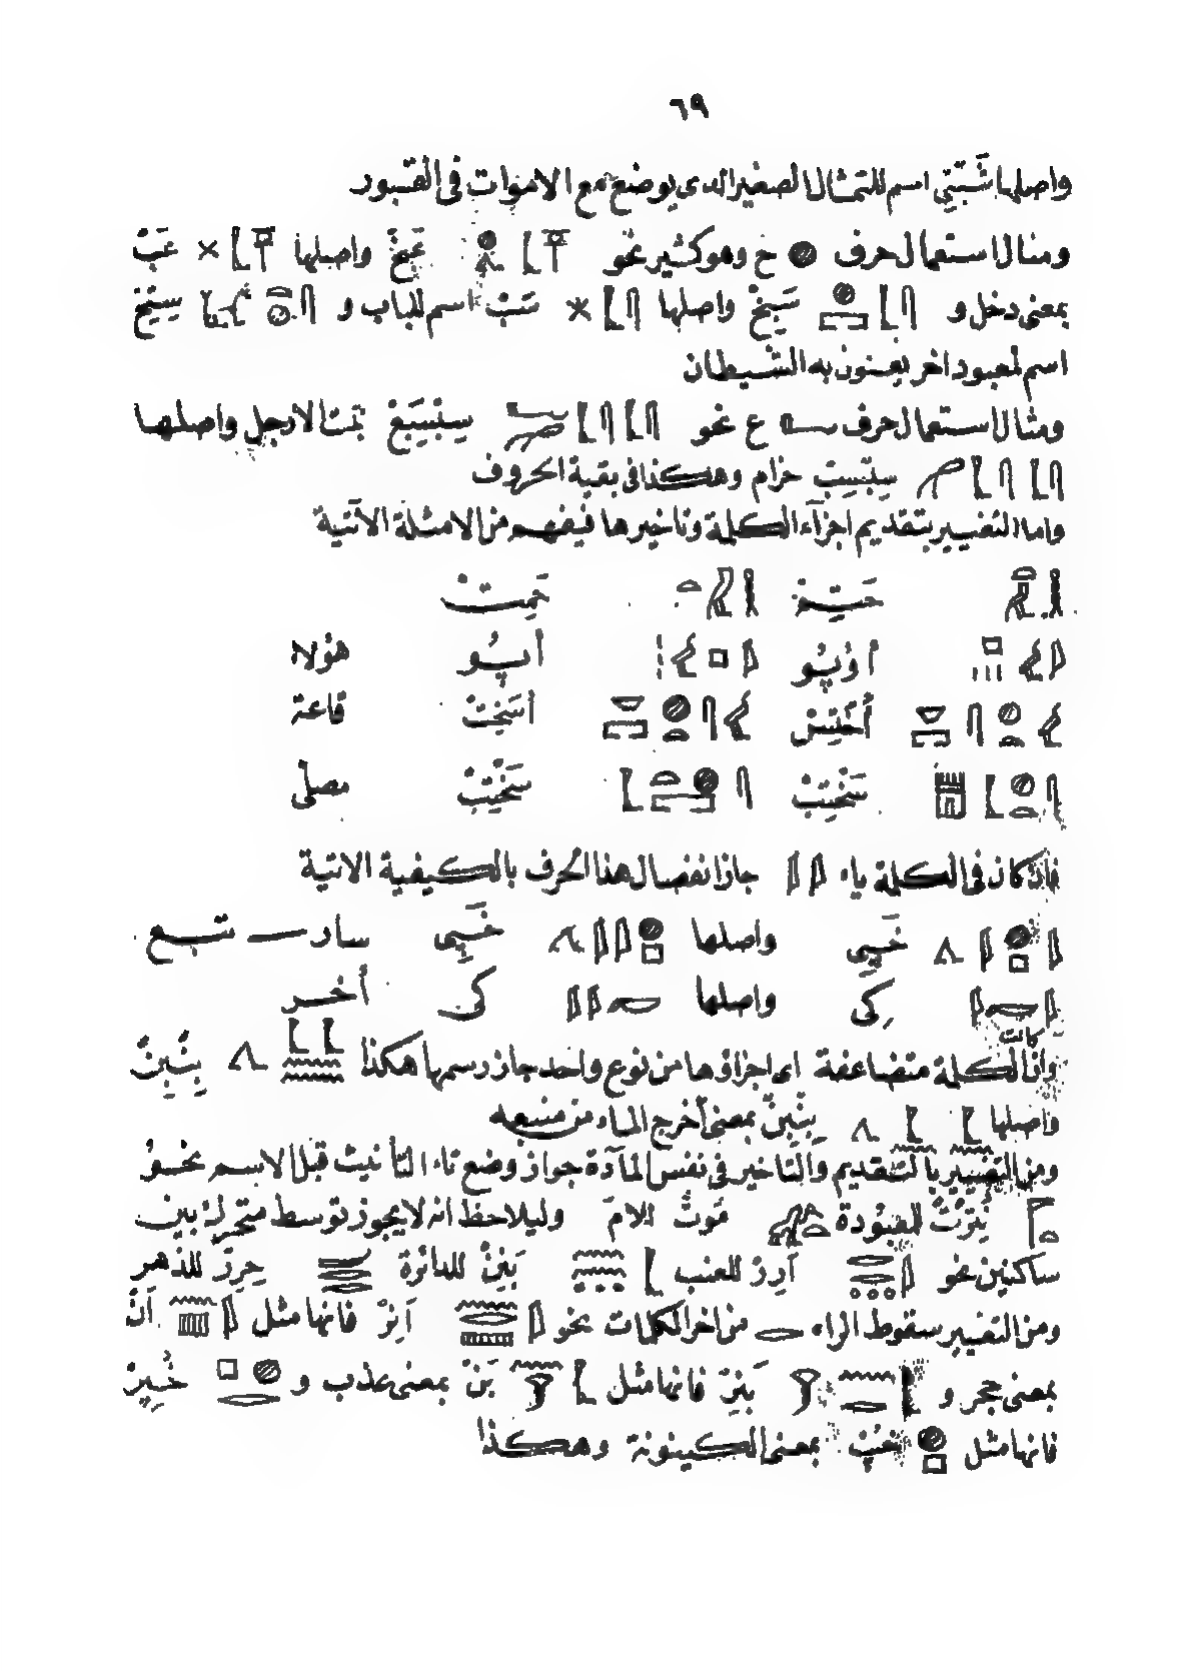 ٦٩
واصلها شَبْتِي اسم للتمثال الصغير الذى يوضع مع الاموات فى القبور
ومثال استعمال حرف خ وهو كثير نحو عَبَخْ واصلها عَبْ
بمعنى دخل و سَبِخْ واصلها سَبْ اسم للباب و سِتِخ
اسم لمعبود اخر يعنون به الشيطان
ومثال استعمال حرف ع نحو سِبْسِبَعْ تمت الارجل واصلها
سِبْسِبْ حزام وهكذا فى بقية الحروف
واما التغيير بتقديم اجزآء الكلمة وتاخيرها فيفهم من الامثلة الآتية
حَتِمْ حَمِتْ
أوْپُو أَپُو هؤلاء
أُخْتِسْ أُسَخِتْ قاعة
سَخْتِبْ سَخْتِبْ مصلى
فان كان فى الكلمة ياء جاز انفصال هذا الحرف بالكيفية الاتية
خَپِى واصلها خَپِى سار — تبع
كِى واصلها كى أخر
وان كانت الكلمة متضاعفة اى اجزاؤها من نوع واحد جاز رسمها هكذا بِنْبِنْ
واصلها بِنْبِنْ بمعنى أخرج الماء من منبعه
ومن التغيير بالتقديم والتاخير فى نفس المآدة جواز وضع تاء التأنيث قبل الاسم نحو
نِتِرْتْ للعبودة مَوتْ الامّ وليلاحظ انه لا يجوز توسط متحرك بين
ساكنين نحو آرِرْ للعنب بَنِنْ للدائرة حِرِرْ للذهر
ومن التغيير سقوط الراء من اخر الكلمات نحو آنِرْ فانها مثل آنْ
بمعنى حجر و بَنِرْ فانها مثل بَنْ بمعنى عذب و خُپِرْ
فانها مثل خُپْ بمعنى الكينونة وهكذا